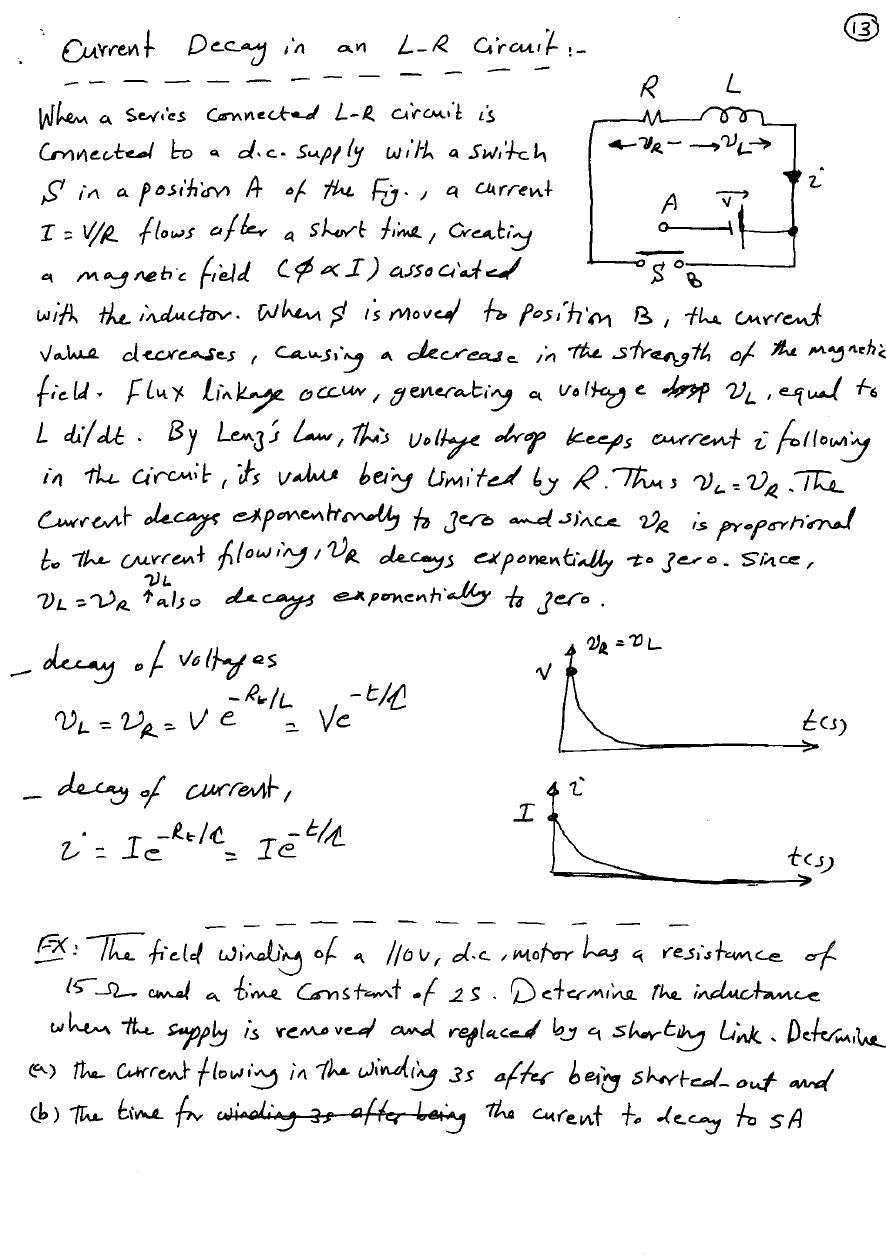 13
Current Decay in an L-R Circuit:-
When a series connected L-R circuit is
Connected to a d.c. supply with a switch
S in a position A of the Fig., a current
I = V/R flows after a short time, Creating
a magnetic field (φ ∝ I) associated
R L
VR VL
i
A V
S B
with the inductor. When S is moved to position B, the current
value decreases, causing a decrease in the strength of the magnetic
field. Flux linkage occur, generating a voltage VL, equal to
L di/dt. By Lenz's Law, This voltage drop keeps current i following
in the circuit, its value being limited by R. Thus VL = VR. The
Current decays exponentionally to zero and since VR is proportional
to the current filowing, VR decays exponentially to zero. Since,
VL = VR VL also decays exponentially to zero.
- decay of voltages
VL = VR = V e^-Rt/L = Ve^-t/τ
VR = VL
V
t(s)
- decay of current,
i = Ie^-Rt/L = Ie^-t/τ
i
I
t(s)
EX: The field winding of a 110v, d.c, motor has a resistance of
15 Ω and a time Constant of 2s. Determine the inductance
when the supply is removed and replaced by a shorting link. Determine
(a) the current flowing in the winding 3s after being shorted-out and
(b) The time for winding 3s after being the curent to decay to 5A